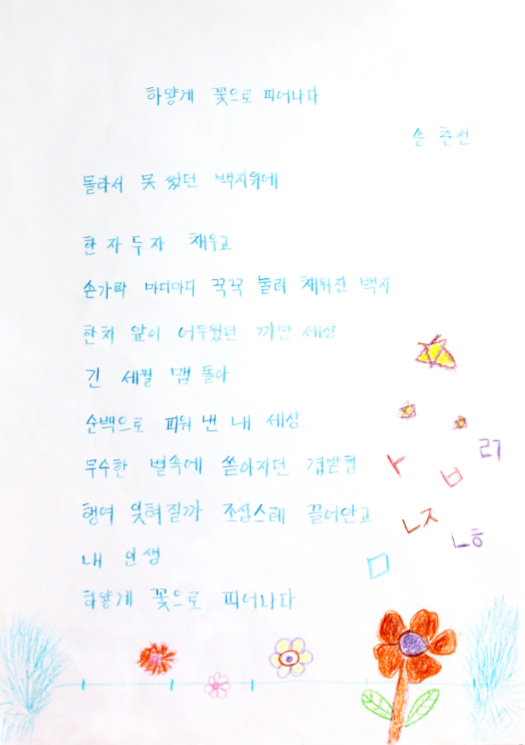 하얗게 꽃으로 피어나다
송 춘선
몰라서 못 썼던 백지위에
한 자 두 자 채우고
손가락 마디마디 꾹꾹 눌러 채워진 백지
한치 앞이 어두웠던 까만 세상
긴 세월 맴 돌아
순백으로 피워 낸 내 세상
무수한 별속에 쏟아지던 겹받침
행여 잊혀질까 조심스레 끌어안고
내 인생
하얗게 꽃으로 피어나다
ㄹㄱ
ㅏ ㅂ
ㄴㅈ
ㄴㅎ
ㅁ